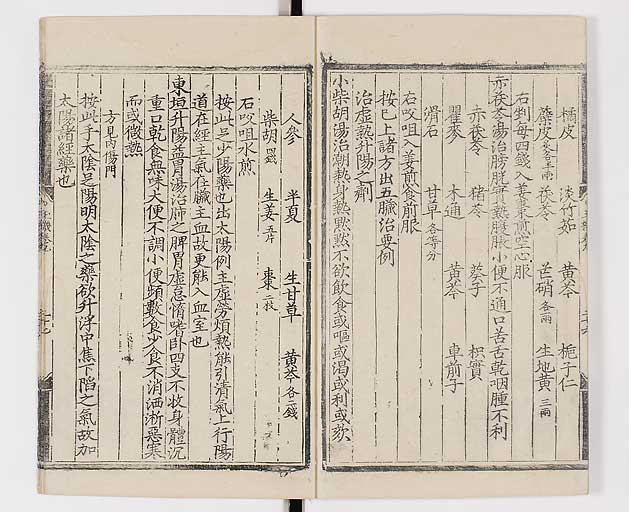 橘皮 淡竹茹 黄芩 梔子仁
蔴皮 茯苓 芒硝各二兩 生地黄三兩
右剉每四錢入姜棗煎空心服
赤茯苓湯治膀胱實熱腹脹小便不通口苦舌乾咽腫不利
赤茯苓 猪苓 葵子 枳實
瞿麥 木通 黄芩 車前子
滑石 甘草各等分
右㕮咀入姜煎食前服
按已上諸方出五臟治要例
治虚熱升陽之劑
小柴胡湯治潮熱身熱默默不欲飲食或嘔或渴或利或欬
人參 半夏 生甘草 黄芩各二錢
柴胡 生姜五片 棗二枚
右㕮咀水煎
按此足少陽藥也出太陽例主虚勞煩熱能引清氣上行陽
道在經主氣在臟主血故更能入血室也
東垣升陽益胃湯治肺之脾胃虚怠惰嗜卧四支不收身體沉
重口乾食無味大便不調小便頻數食少食不消洒淅惡寒
而或微熱
方見内傷門
按此手太陰足陽明太陰之藥欲升浮中焦下陷之氣故加
太陽諸經藥也